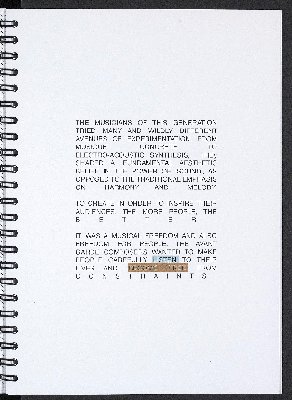 THE MUSICIANS OF THIS GENERATION
TRIED MANY AND WILDLY DIFFERENT
AVENUES OF EXPERIMENTATION. FROM
MUSIQUE CONCRETE TO
ELECTRO-ACOUSTIC SYNTHESIS, THEY
SHARED A FUNDAMENTAL AESTHETIC
BELIEF IN THE POWER OF SOUND, AS
OPPOSED TO THE TRADITIONAL EMPHASIS
ON HARMONY AND MELODY
TO CREATE IN ORDER TO INSPIRE THEIR
AUDIENCES, THE MORE PEOPLE, THE
B E T T E R
IT WAS A MUSICAL FREEDOM AND ALSO
FREEDOM FOR PEOPLE. THE AVANT
GARDE COMPOSERS WANTED TO MAKE
PEOPLE CAREFULLY LISTEN TO THEIR
AND FROM
C O N S T R A I N T S